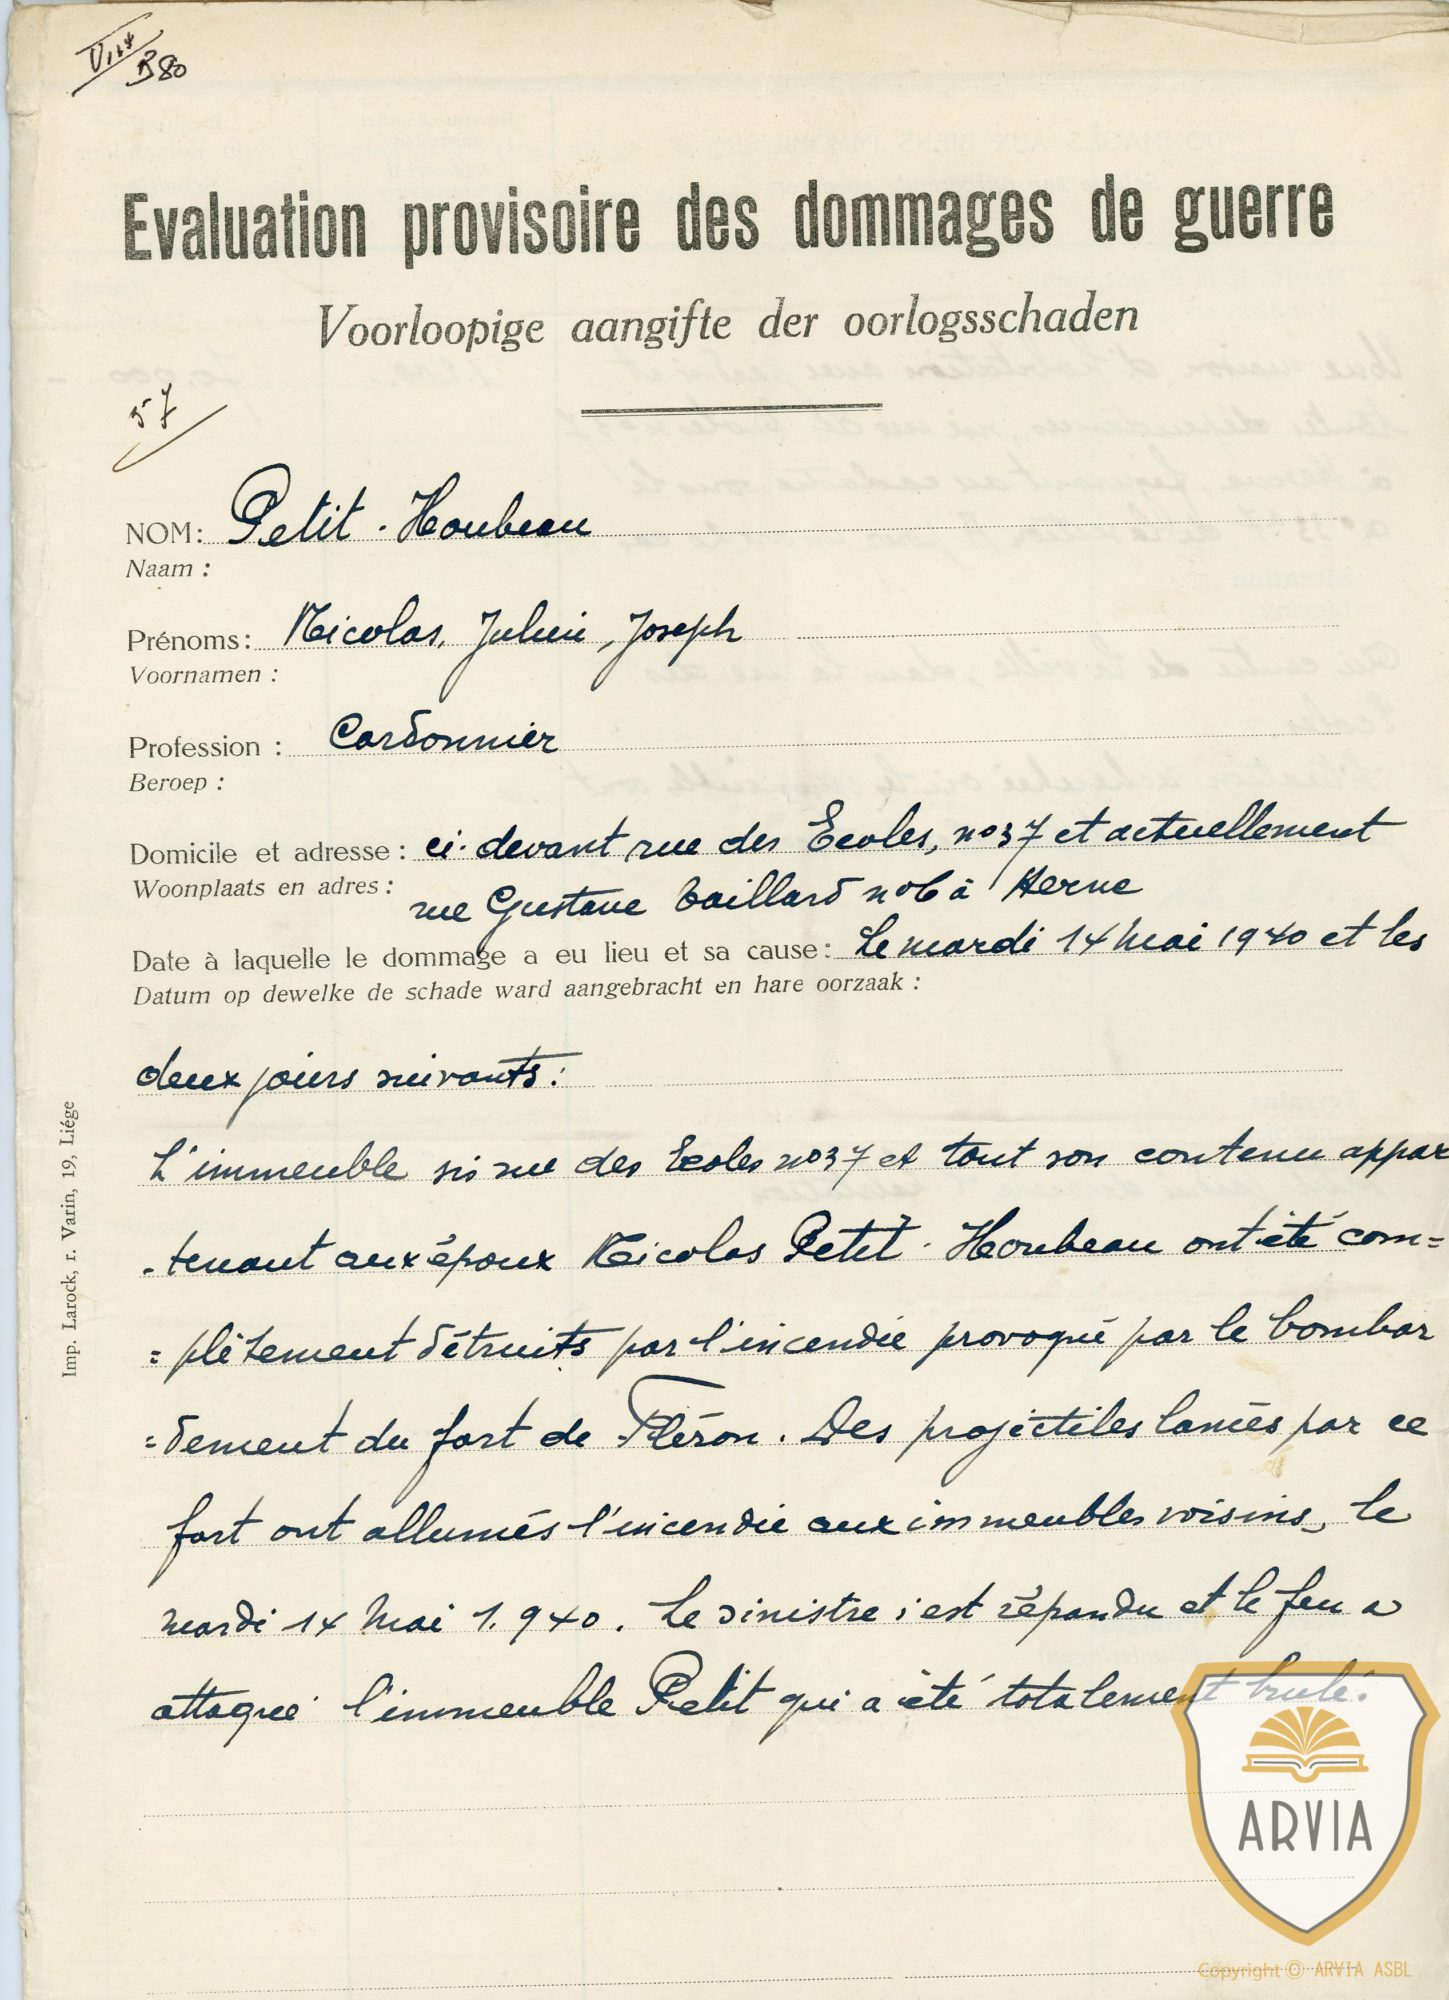 B80
Evaluation provisoire des dommages de guerre
Voorloopige aangifte der oorlogsschaden
57
NOM: Petit - Houbeau
Naam :
Prénoms: Nicolas, Julien, Joseph
Voornamen :
Profession : Cordonnier
Beroep :
Domicile et adresse : ci-devant rue des Ecoles, n° 37 et actuellement
Woonplaats en adres : rue Gustave Taillard n° 6 à Herve
Date à laquelle le dommage a eu lieu et sa cause : Le mardi 14 Mai 1940 et les
Datum op dewelke de schade ward aangebracht en hare oorzaak :
deux jours suivants :
L'immeuble sis rue des Ecoles n° 37 et tout son contenu appar
-tenant aux époux Nicolas Petit - Houbeau ont été com=
=plètement détruits par l'incendie provoqué par le bombar
=dement du fort de Fléron. Des projectiles lancés par ce
fort ont allumés l'incendie aux immeubles voisins, le
mardi 14 Mai 1.940. Le sinistre s'est répandu et le feu a
attaqué l'immeuble Petit qui a été totalement brulé.
Imp. Larock, r. Varin, 19, Liége
ARVIA
Copyright © ARVIA ASBL